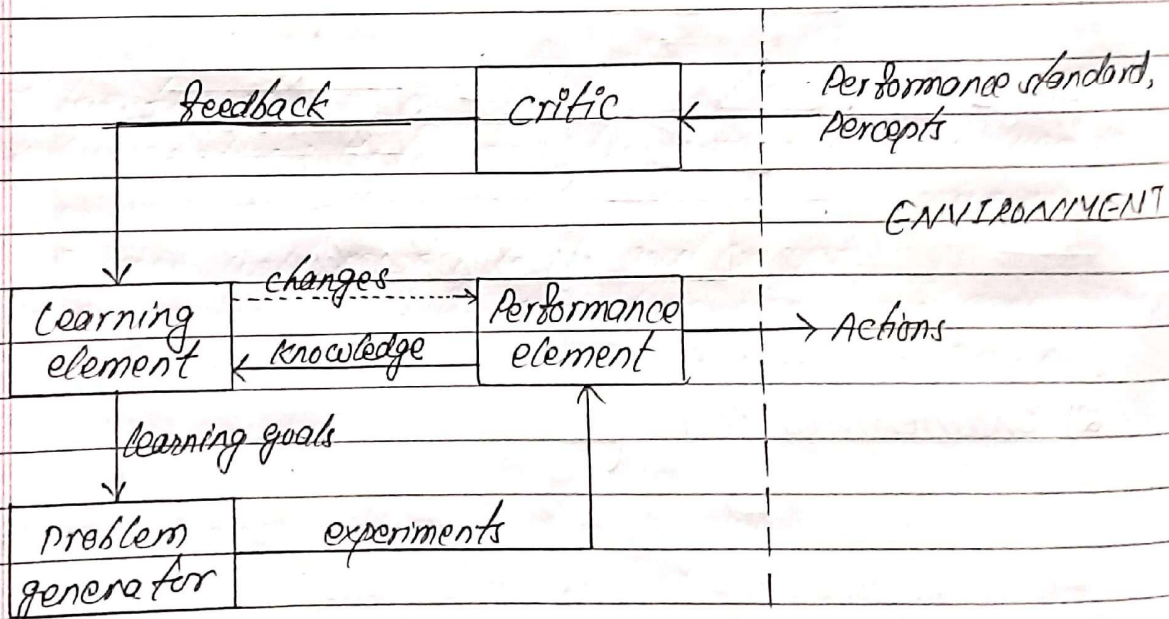 feedback
Critic
Performance standard,
Percepts
ENVIRONMENT
Learning
element
changes
Knowledge
Performance
element
Actions
learning goals
Problem
generator
experiments